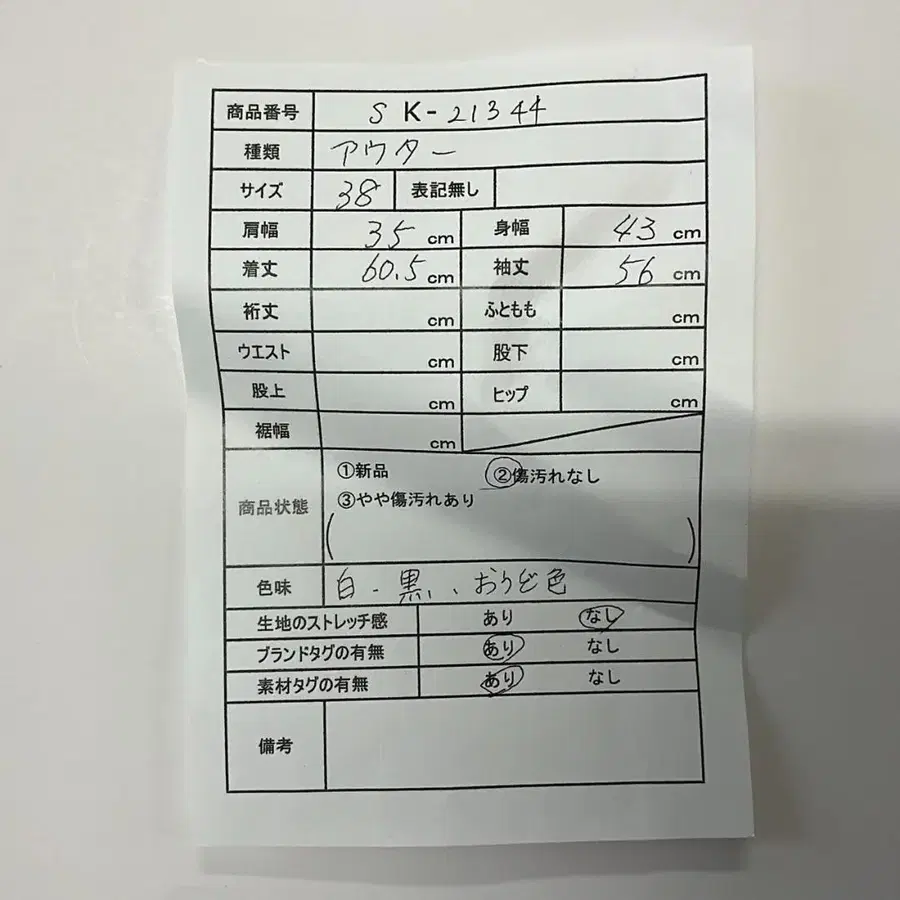 商品番号 SK-21344
種類 アウター
サイズ 38 表記無し
肩幅 35 cm 身幅 43 cm
着丈 60.5 cm 袖丈 56 cm
裄丈 cm ふともも cm
ウエスト cm 股下 cm
股上 cm ヒップ cm
裾幅 cm
商品状態 ①新品 ②傷汚れなし
③やや傷汚れあり
( )
色味 白、黒、おうど色
生地のストレッチ感 あり なし
ブランドタグの有無 あり なし
素材タグの有無 あり なし
備考